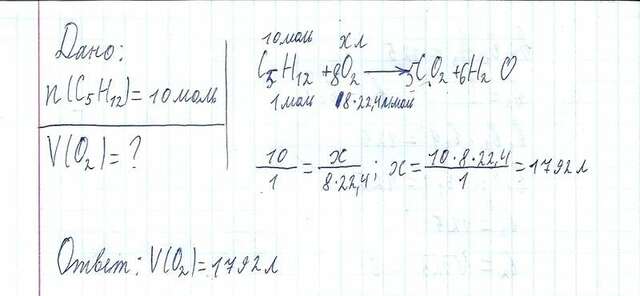 Дано:
n(C5H12)=10моль
V(O2)=?
10моль x л
C5H12 + 8O2 → 5CO2 + 6H2O
1моль 8·22,4л/моль
10/1 = x/8·22,4; x = 10·8·22,4/1 = 1792л
Ответ: V(O2)=1792л